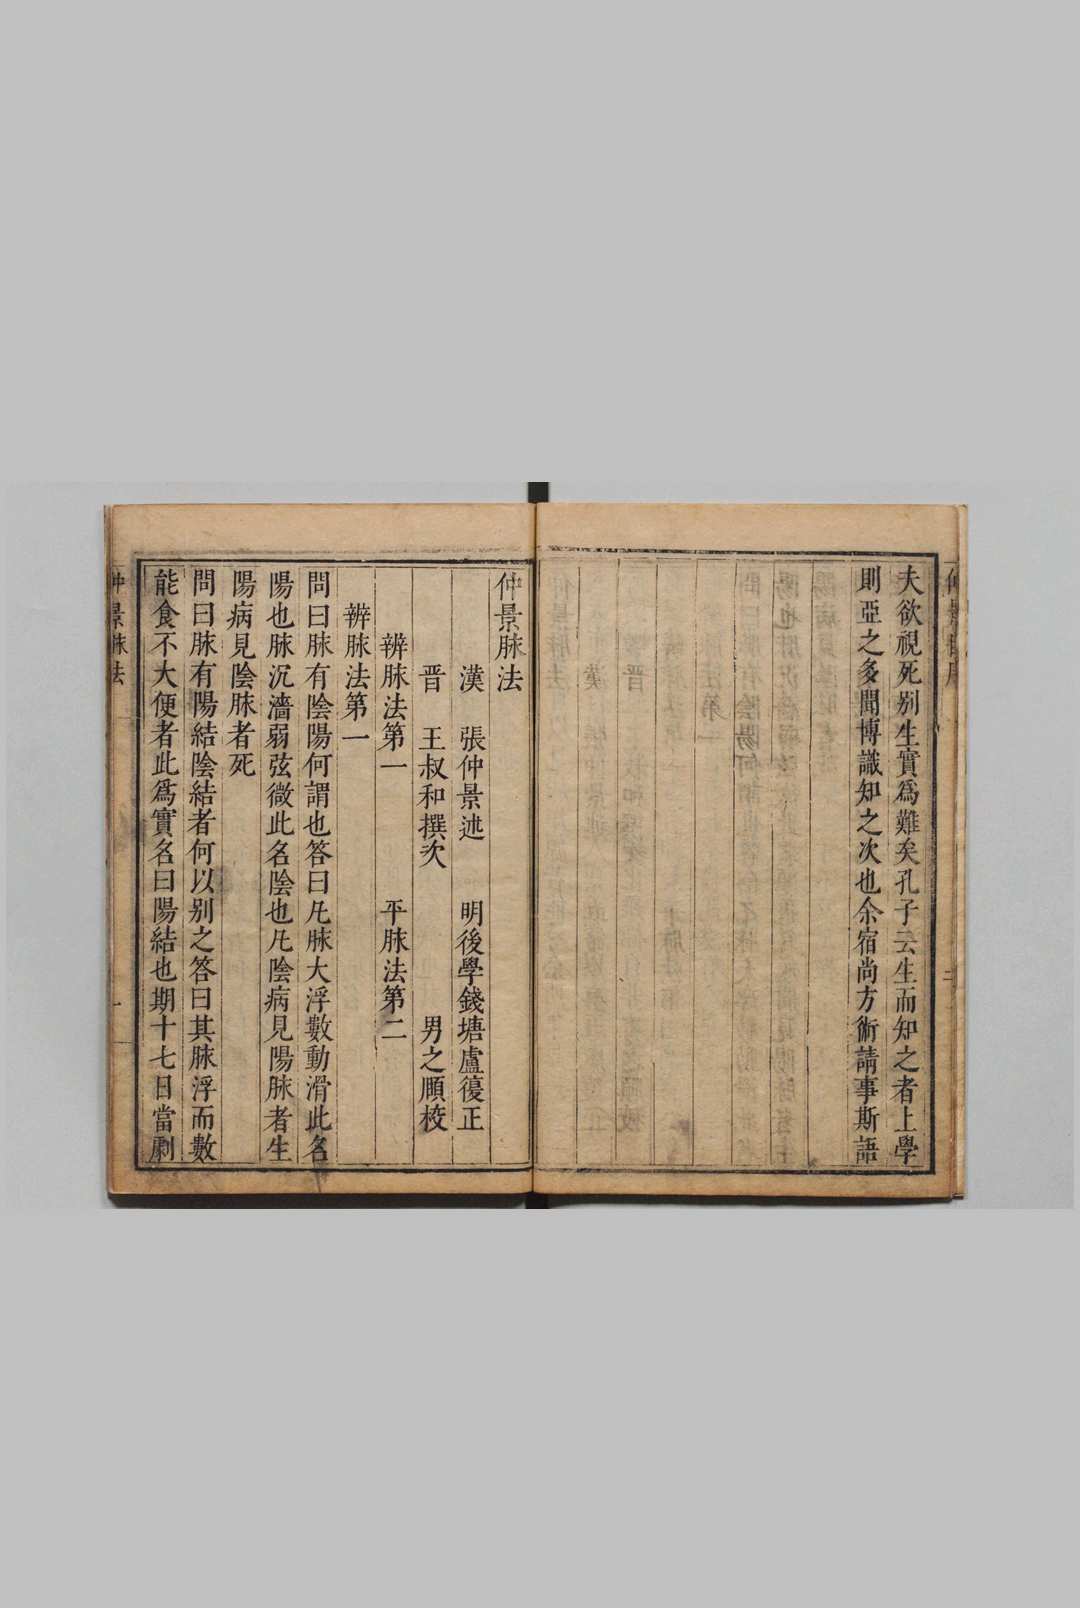 夫欲視死别生實爲難矣孔子云生而知之者上學
則亞之多聞博識知之次也余宿尚方術請事斯語
仲景脉法
漢　張仲景述　明後學錢塘盧復正
晋　王叔和撰次　男之頤校
辨脉法第一　平脉法第二
辨脉法第一
問曰脉有陰陽何謂也答曰凡脉大浮數動滑此名
陽也脉沉濇弱弦微此名陰也凡陰病見陽脉者生
陽病見陰脉者死
問曰脉有陽結陰結者何以别之答曰其脉浮而數
能食不大便者此爲實名曰陽結也期十七日當劇
仲景脉法
一